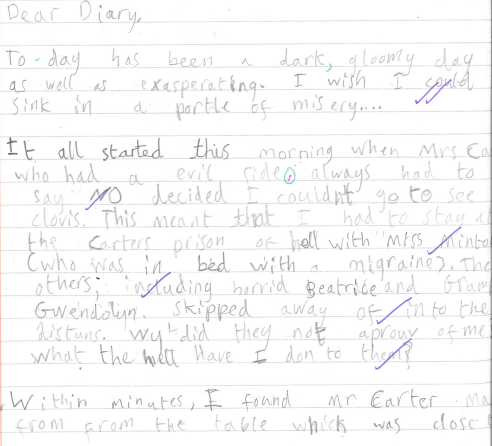 Dear Diary,
To-day has been a dark, gloomy day
as well as exasperating. I wish I could
sink in a portle of misery....
It all started this morning when Mrs Ca
who had a evil side, always had to
say NO decided I couldn't go to see
clovis. This meant that I had to stay a
the Carters prison of hell with Miss Minto
(who was in bed with a migraine). The
others; including horrid Beatrice and Grum
Gwendolyn. skipped away of in to the
distuns. wy did they not aprouv of me
what the hell Have I don to them?
Within minutes, I found mr Carter ma
from from the table which was close